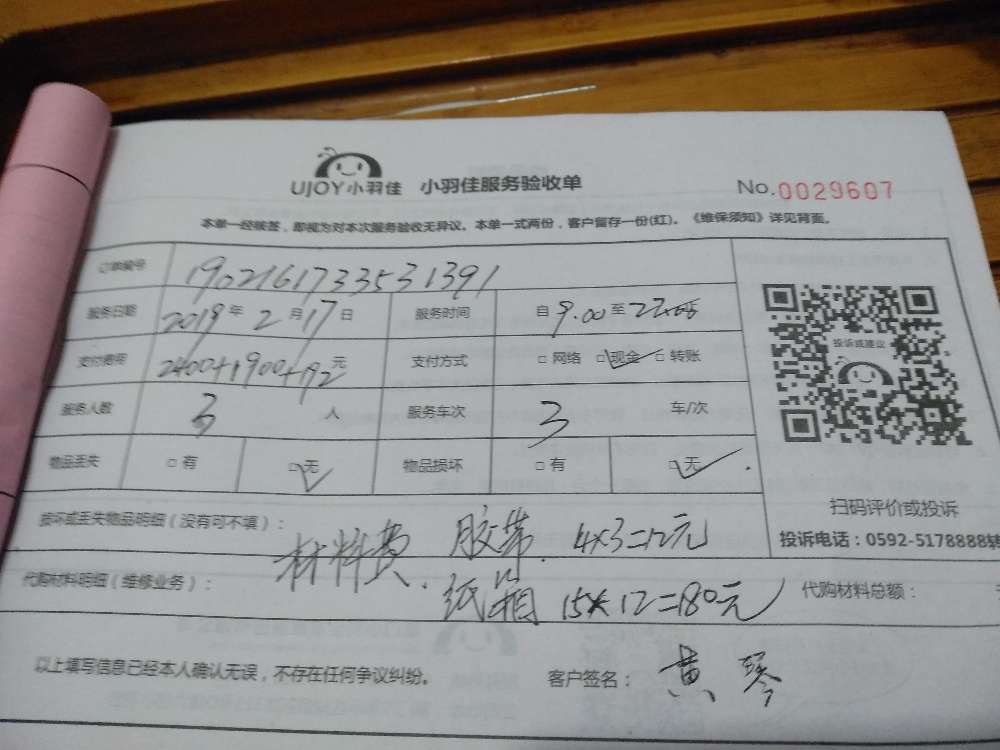 UJOY小羽佳 小羽佳服务验收单 No.0029607
本单一经核签，即视为对本次服务验收无异议。本单一式两份，客户留存一份(红)。《维保须知》详见背面。
订单编号 1902161733531391
服务日期 2019年2月17日 服务时间 自9.00至
投诉或建议
支付费用 2400+1900+192元 支付方式 □网络 □现金✓ □转账
服务人数 3人 服务车次 3车/次
物品丢失 □有 □无✓ 物品损坏 □有 □无✓
扫码评价或投诉
投诉电话：0592-5178888转
损坏或丢失物品明细（没有可不填）：
材料费. 胶带. 4×3=12元
代购材料明细（维修业务）：
纸箱 15×12=180元
代购材料总额：
以上填写信息已经本人确认无误，不存在任何争议纠纷。 客户签名：黄琴